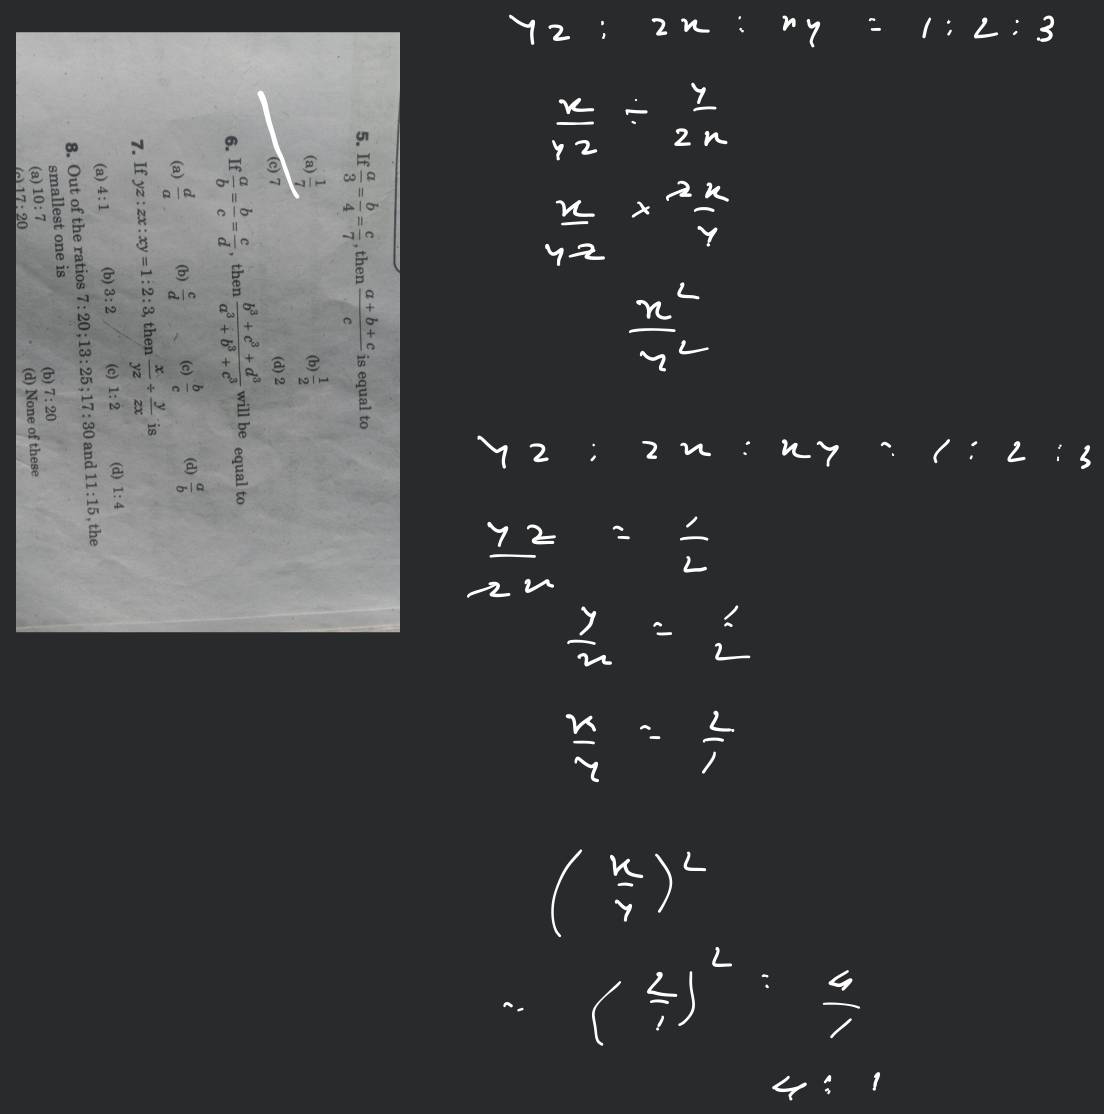 5. If a/3 = b/4 = c/7, then (a + b + c)/c is equal to
(a) 1/7 (b) 1/2
(c) 7 (d) 2
6. If a/b = b/c = c/d, then (b³ + c³ + d³)/(a³ + b³ + c³) will be equal to
(a) d/a (b) c/d (c) b/c (d) a/b
7. If yz : zx : xy = 1 : 2 : 3, then x/yz ÷ y/zx is
(a) 4:1 (b) 3:2 (c) 1:2 (d) 1:4
8. Out of the ratios 7:20; 13:25; 17:30 and 11:15, the
smallest one is
(a) 10:7 (b) 7:20
(c) 17:20 (d) None of these
yz : zx : xy = 1 : 2 : 3
x/yz ÷ y/zx
x/yz × zx/y
x²/y²
yz : zx : xy = 1 : 2 : 3
yz/zx = 1/2
y/x = 1/2
x/y = 2/1
(x/y)²
= (2/1)² = 4/1
4 : 1